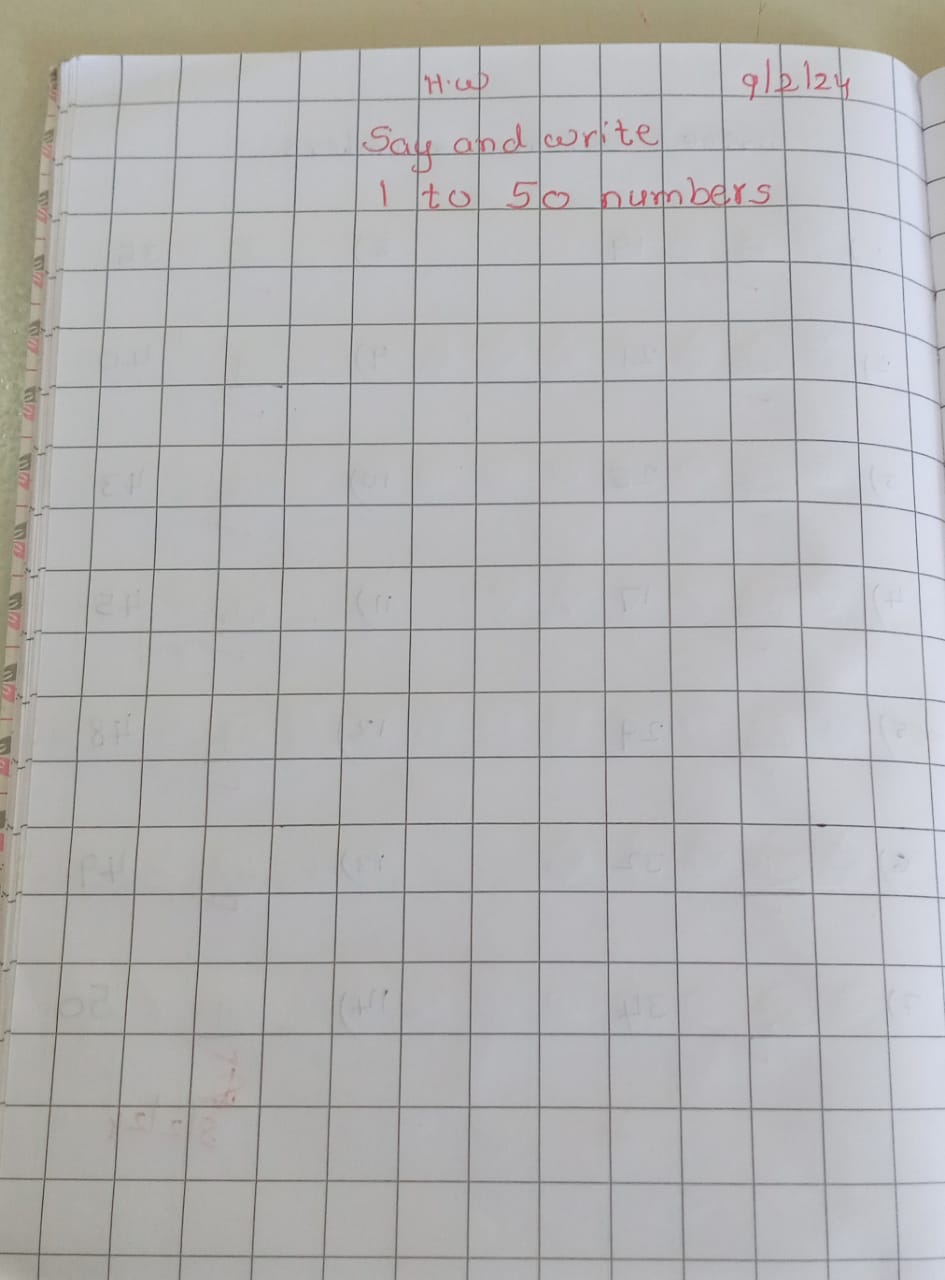 H.W 9/2/24
Say and write
1 to 50 numbers